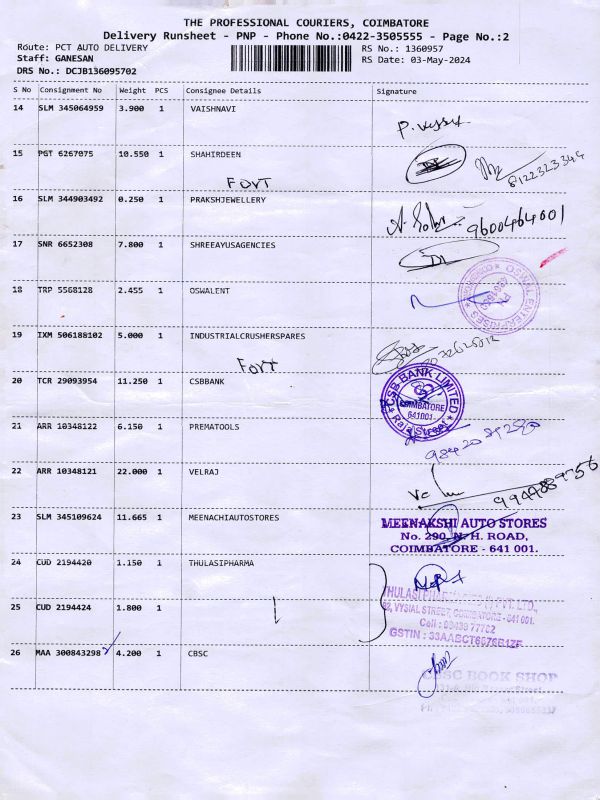 THE PROFESSIONAL COURIERS, COIMBATORE
Delivery Runsheet - PNP - Phone No.:0422-3505555 - Page No.:2
Route: PCT AUTO DELIVERY RS No.: 1360957
Staff: GANESAN RS Date: 03-May-2024
DRS No.: DCJB136095702
S No Consignment No Weight PCS Consignee Details Signature
14 SLM 345064959 3.900 1 VAISHNAVI
15 PGT 6267075 10.550 1 SHAHIRDEEN
8122323344
FOVT
16 SLM 344903492 0.250 1 PRAKSHJEWELLERY
9600464001
17 SNR 6652308 7.800 1 SHREEAYUSAGENCIES
18 TRP 5568128 2.455 1 OSWALENT
OSWAL ENTERPRISES
19 IXM 506188102 5.000 1 INDUSTRIALCRUSHERSPARES
FOVT
20 TCR 29093954 11.250 1 CSBBANK
CSB BANK LIMITED
COIMBATORE
641001
Raja Street
21 ARR 10348122 6.150 1 PREMATOOLS
22 ARR 10348121 22.000 1 VELRAJ
23 SLM 345109624 11.665 1 MEENACHIAUTOSTORES
MEENAKSHI AUTO STORES
No. 290, N. H. ROAD,
COIMBATORE - 641 001.
24 CUD 2194420 1.150 1 THULASIPHARMA
25 CUD 2194424 1.800 1
VYSIAL STREET, COIMBATORE - 641 001.
Cell : 98438 77762
26 MAA 300843298 4.200 1 CBSC
CBSC BOOK SHOP